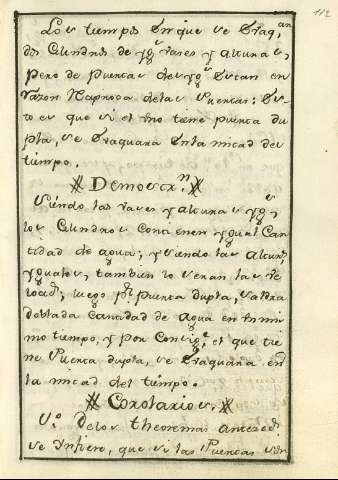 112
Los tiempos en que se desag,an
dos Cilindros de yg.s vases y alturas,
pero de Puertas desyg.s Estan en
razon reciproca delas Puertas; Es-
to es que si el uno tiene puerta du
pla, se desaguara en la mitad del
tiempo.
Demostr.n
Siendo las vases y alturas yg.s
los Cilindros Contienen ygual Can
tidad de agua; y siendo las alturas
yguales, tambien lo seran las ve
locid.s luego por puerta dupla, saldra
doblada Cantidad de Agua en un mis
mo tiempo, y por Consig.te el que tie
ne Puerta dupla, se desaguara en
la mitad del tiempo.
Corolarios.
De los theoremas anteced.
se infiere, que si las Puertas